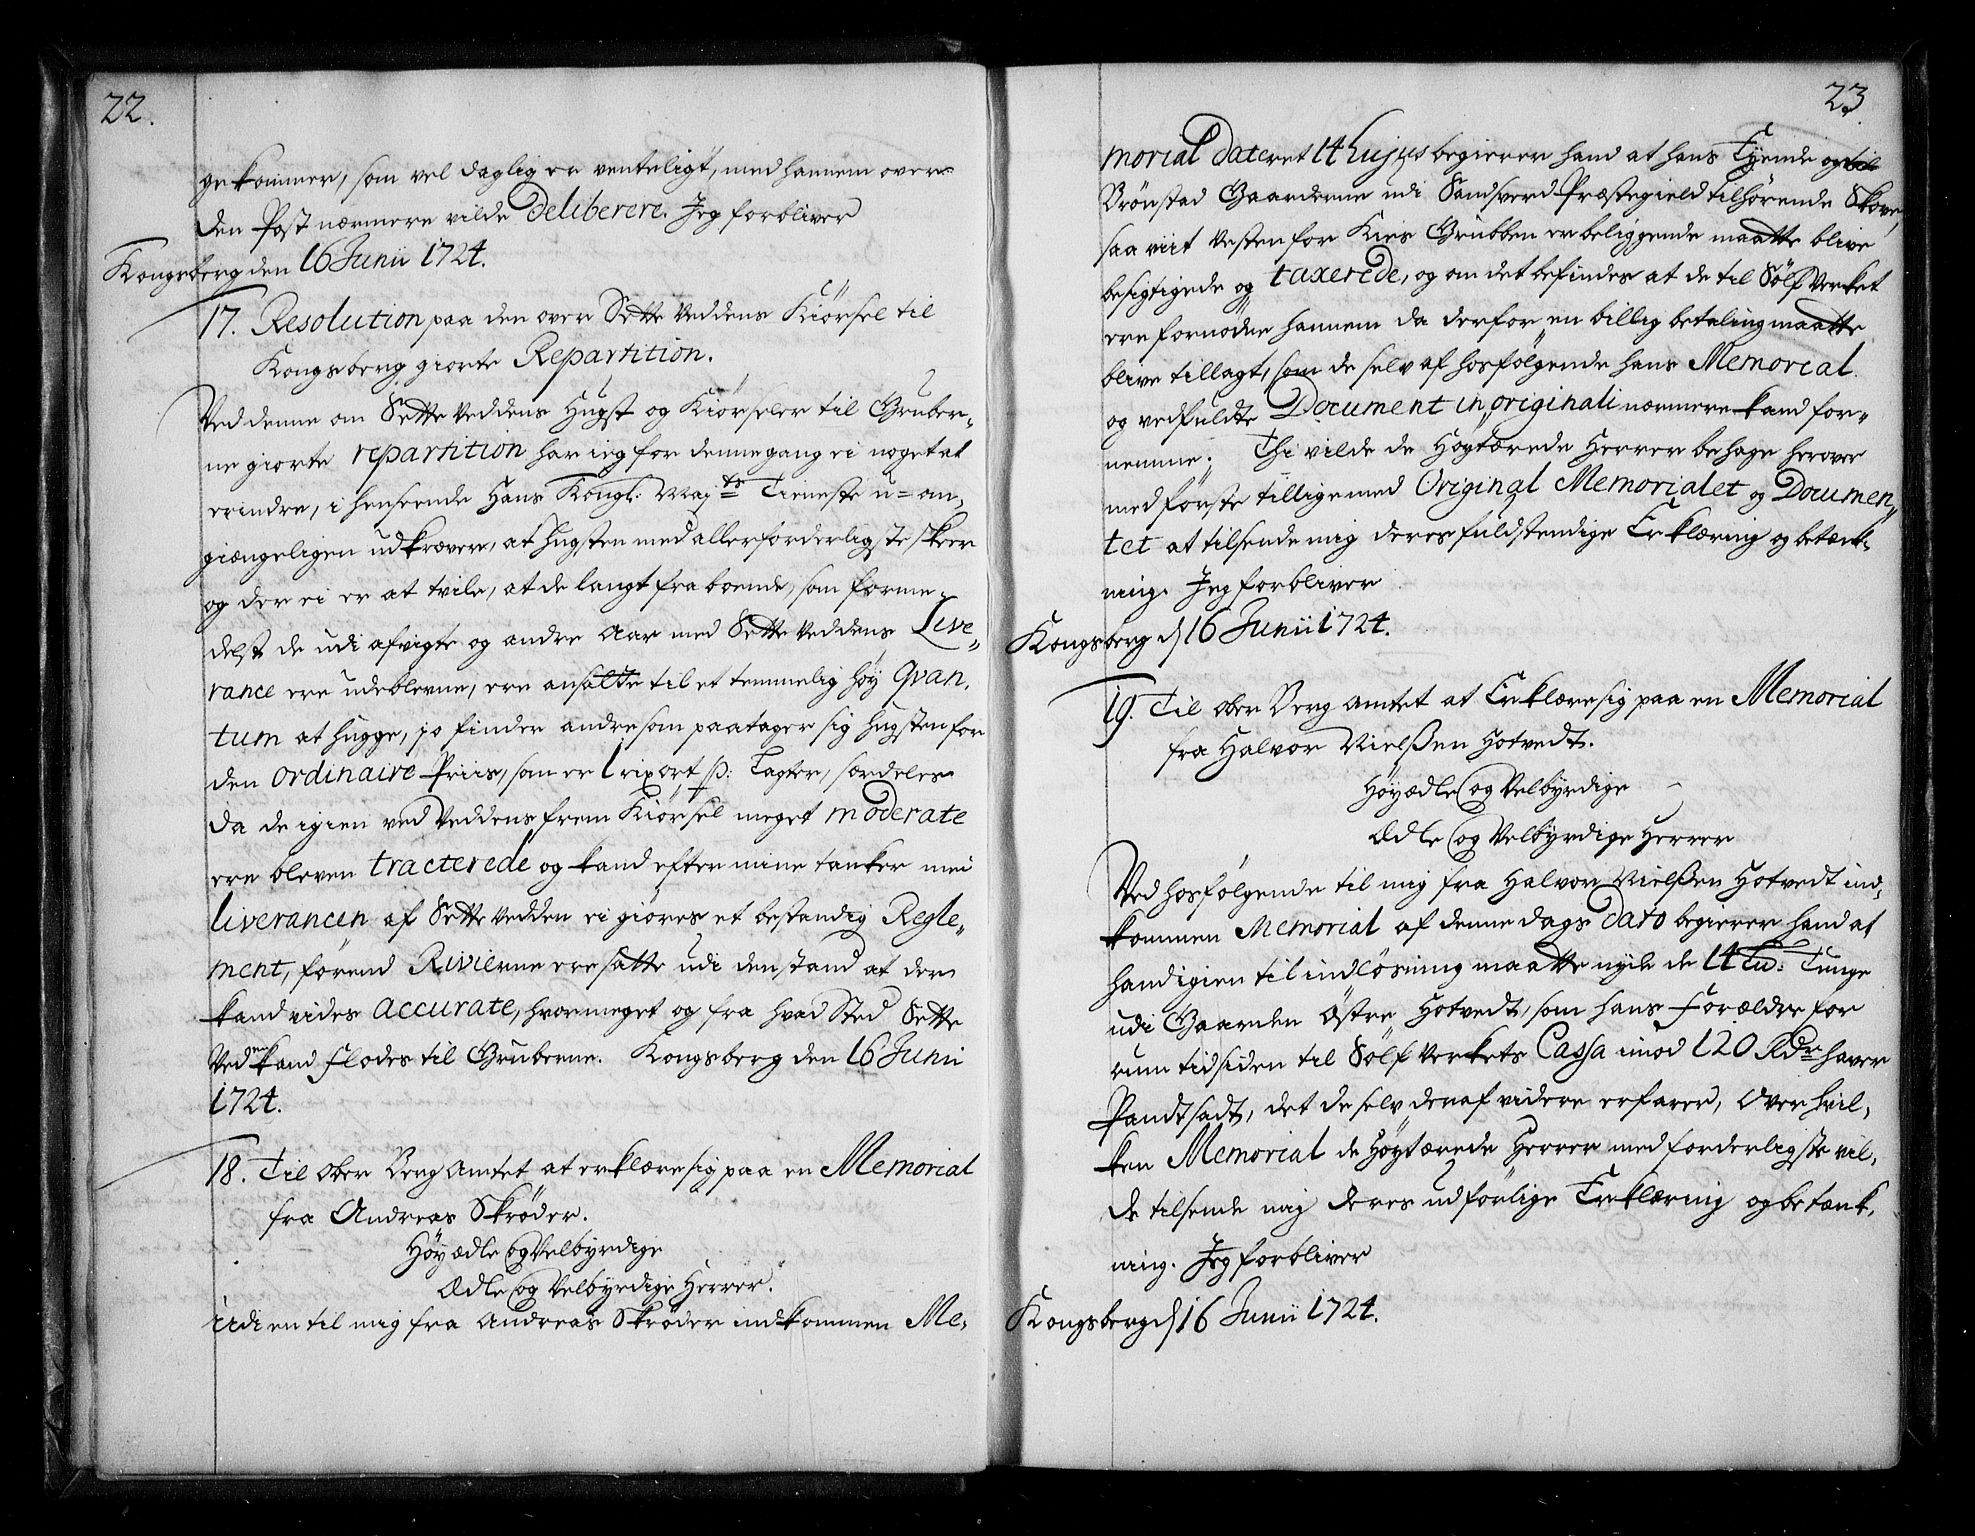 22.
ge kommer, som vel daglig er venteligt, med hannem over
den Post nærmere vilde Deliberere. Jeg forbliver
Kongsberg den 16 Junii 1724.
17. Resolution paa den over Sette Veddens Kiørsel til
Kongsberg giorte Repartition.
Ved denne om Sette Veddens Hugst og Kiørseler til Gruber-
ne giorte repartition har ieg for denne gang ei noget at
erindre, i henseende Hans Kongl: Maj:ts Tieneste u-om-
giængeligen udkræver, at Hugsten med allerforderligste skeer
og der ei er at tvile, at de langt fra boende, som forme-
delst de udi afvigte og andre Aar med Sette Veddens Live-
rance ere udeblevne, ere ansatte til et temmelig høy Qvan-
tum at hugge, jo finder andre som paatager sig hugsten for
den ordinaire Priis, som er 1 rixort p: Lagter, særdeles
da de igien ved Veddens frem Kiørsel meget moderate
ere bleven tracterede og kand efter mine tanker med
liverancen af Sette Vedden ei giøres et bestandig Regle-
ment, førend Rivierne ere satte udi den stand at der
kand vides accurate, hvor meget og fra hvad Sted Sette
Vedden kand flødes til Gruberne. Kongsberg den 16 Junii
1724.
18. Til Ober Berg Amtet at erklære sig paa en Memorial
fra Andreas Skrøder.
Høyædle og Velbyrdige
Ædle og Velbyrdige Herrer.
Udi en til mig fra Andreas Skrøder indkommen Me-
23
morial Dateret 14 hujus begierer hand at hans Tyende og til
Brønstad Gaarderne udi Sandsverd Præstegield tilhørende Skove,
saa viit Vesten for Kies Grubben er beliggende maatte blive
besigtigede og taxerede, og om det befindes at de til Sølf Verket
ere fornødne hannem da derfor en billig betaling maatte
blive tillagt, som de selv af hosfølgende hans Memorial
og vedfuldte Document in originali nærmere kand for-
nemme. Thi vilde de Høytærede Herrer behage herover
med første tillige med Original Memorialet og Documen-
tet at tilsende mig deres fuldstendige Erklæring og betænk-
ning. Jeg forbliver
Kongsberg d 16 Junii 1724.
19. Til Ober Berg Amtet at Erklære sig paa en Memorial
fra Halvor Nielssen Hotvedt.
Høyædle og Velbyrdige
Ædle og Velbyrdige Herrer
Ved hosfølgende til mig fra Halvor Nielssen Hotvedt ind-
kommen Memorial af denne dags Dato begierer hand at
hand igien til indløsning maatte nyde de 14 Tunge
udi Gaarden Østre Hotvedt, som hans Forældre for
rum tid siden til Sølf Verkets Cassa imod 120 Rdr haver
Pandtsadt, det de selv deraf videre erfarer, Over hvil-
ken Memorial de Høytærede Herrer med forderligste vil-
de tilsende mig Deres udførlige Erklæring og betænk-
ning. Jeg forbliver
Kongsberg d 16 Junii 1724.